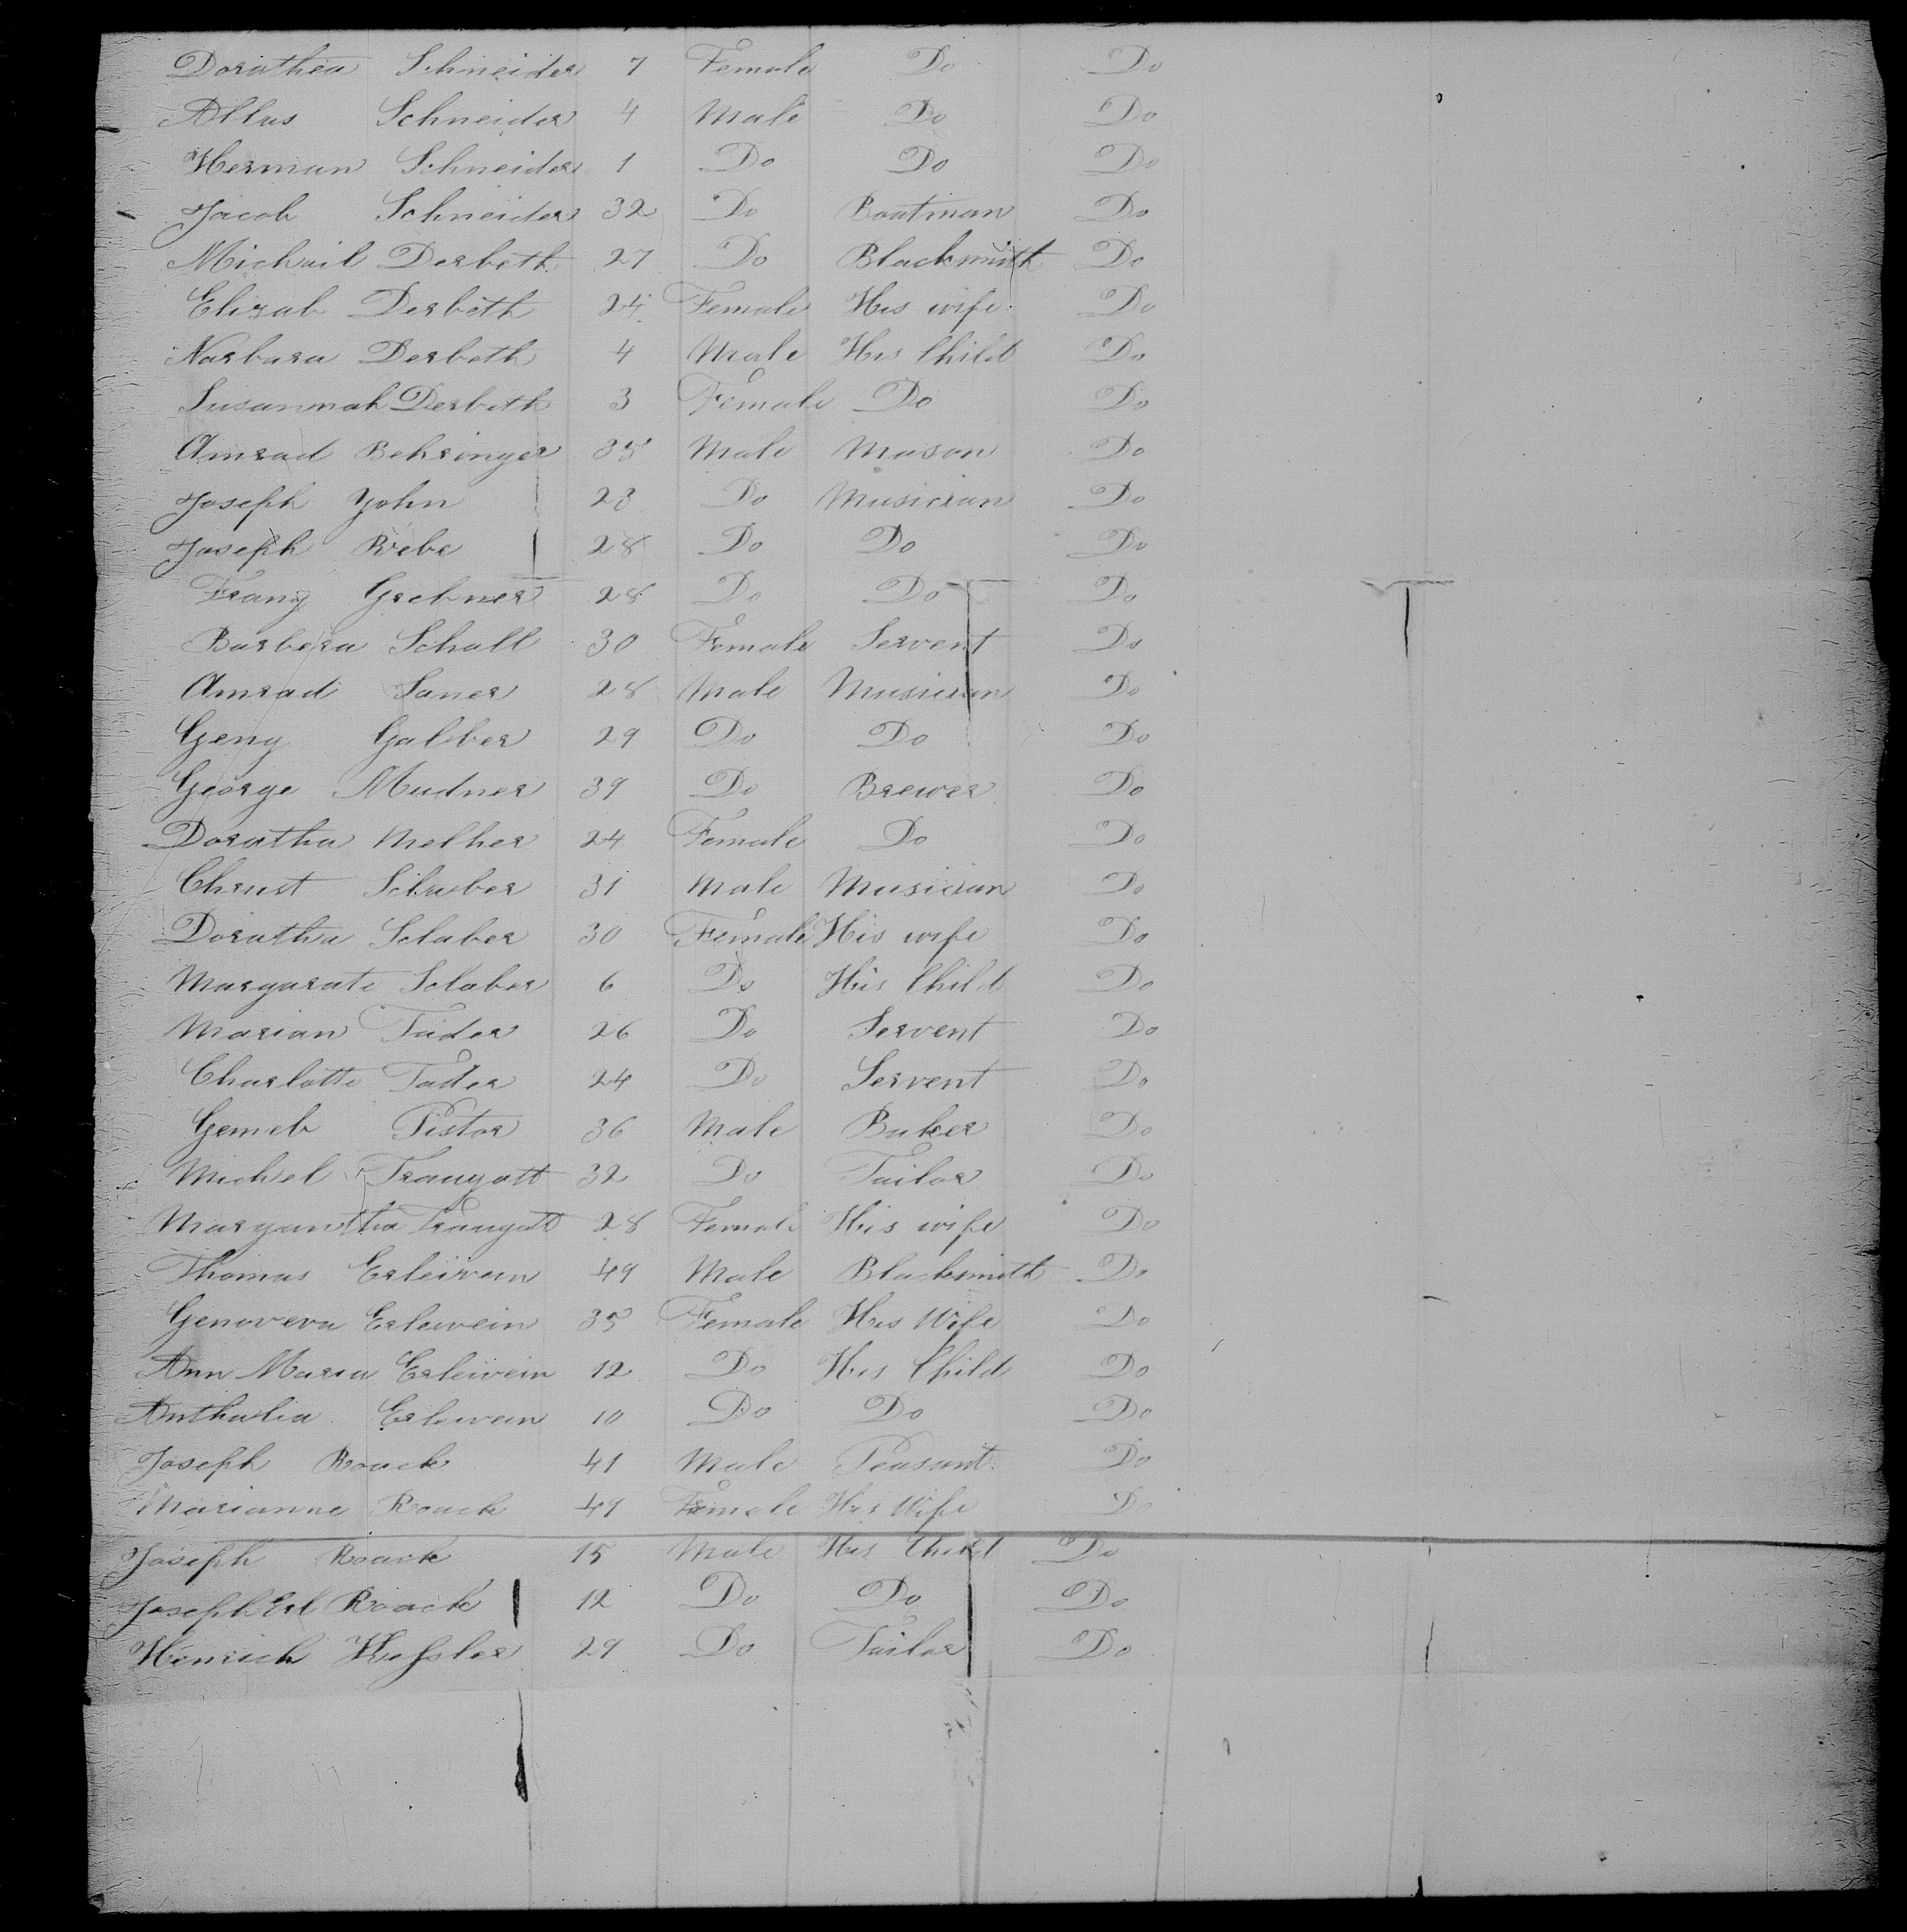 Dorathea Schneider 7 Female Do Do
Allus Schneider 4 Male Do Do
Herman Schneider 1 Do Do Do
Jacob Schneider 32 Do Boatman Do
Michail Derbeth 27 Do Blacksmith Do
Elizab Derbeth 24 Female His wife Do
Narbara Derbeth 4 Male His Child Do
Susannah Derbeth 3 Female Do Do
Amrad Behringer 35 Male Mason Do
Joseph John 23 Do Musician Do
Joseph Rebe 28 Do Do Do
Frang Grebner 28 Do Do Do
Barbera Schall 30 Female Servent Do
Amrad Saner 28 Male Musician Do
Geng Galber 29 Do Do Do
George Mudner 39 Do Brewer Do
Doratha Melher 24 Female Do Do
Chrust 31 Male Musician Do
Doratha Sclaber 30 Female His wife Do
Margarate Sclaber 6 Do His Child Do
Marian Tader 26 Do Servent Do
Charlotte Tader 24 Do Servent Do
Gemeb Pistor 36 Male Baker Do
Michel Traugott 32 Do Tailor Do
Margantha Traugott 28 Female His wife Do
Thomas Erleiwein 49 Male Blacksmith Do
Genoveva Erleiwein 35 Female His Wife Do
Ann Maria Erleiwein 12 Do His Child Do
Anthalia Erleiwein 10 Do Do Do
Joseph Roack 41 Male Peasant Do
Marianne Roack 49 Female His Wife Do
Joseph Roack 15 Male His Child Do
Joseph Erl Roack 12 Do Do Do
Henrich Hessler 29 Do Tailor Do